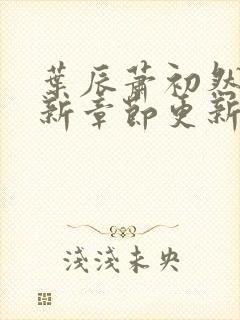 葉辰蕭初然
新章節更新
淺淺未央